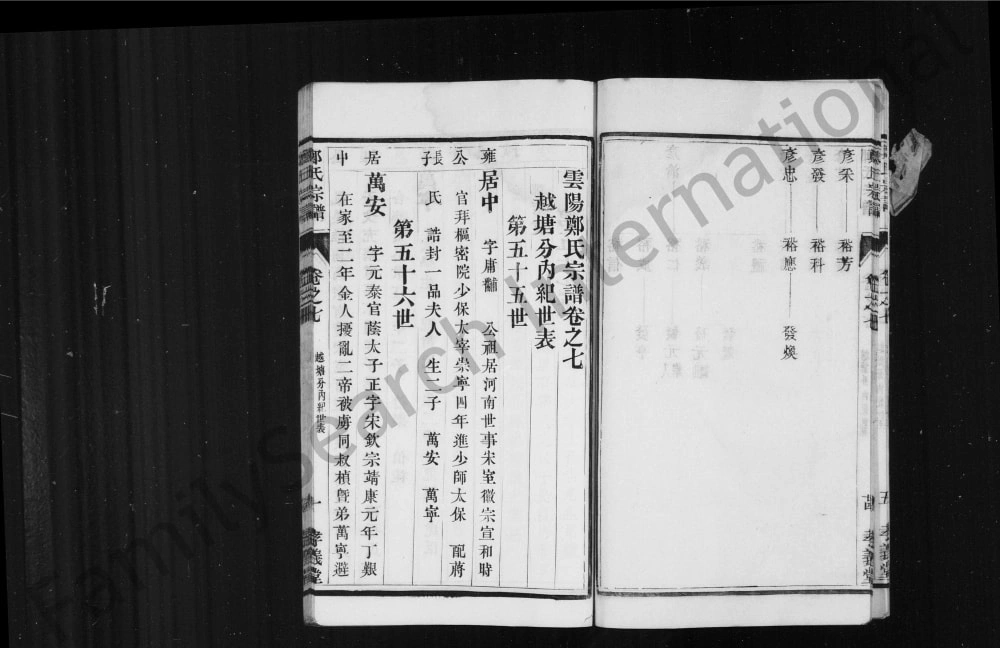 彥采 裕芳
彥發 裕科
彥忠 裕應 發煥
五
孝義堂
雲陽鄭氏宗譜卷之七
越塘分內紀世表
第五十五世
雍公長子
居中 字庸黼 公祖居河南世事宋室徽宗宣和時
官拜樞密院少保太宰崇寧四年進少師太保 配蔣
氏 誥封一品夫人 生二子 萬安 萬寧
第五十六世
居中
萬安 字元泰官蔭太子正字宋欽宗靖康元年丁艱
在家至二年金人擾亂二帝被虜同叔楨曁弟萬寧避
鄭氏宗譜
卷之七
越塘分內紀世表
一
孝義堂
FamilySearch International